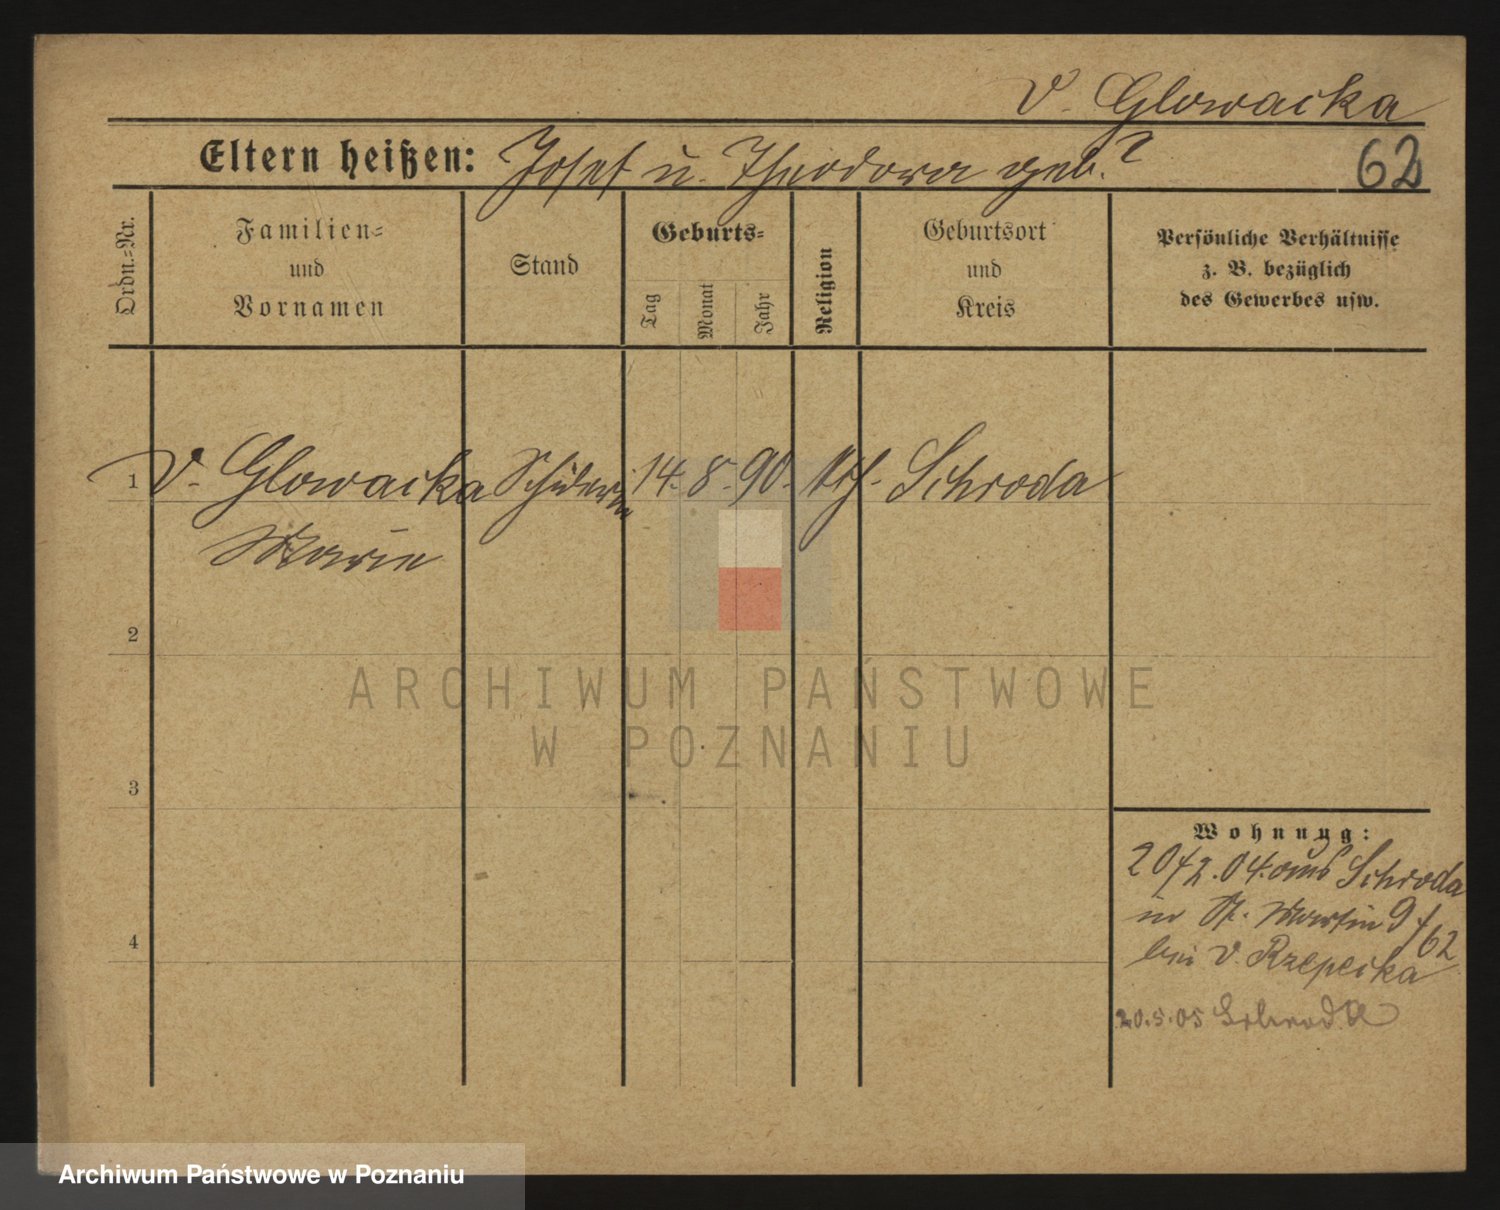 v. Glowacka
Eltern heißen: Josef u. Theodora geb. ?
62
Ordn.-Nr.
Familien-
und
Vornamen
Stand
Geburts-
Tag
Monat
Jahr
Religion
Geburtsort
und
Kreis
Persönliche Verhältnisse
z. B. bezüglich
des Gewerbes usw.
1 v. Glowacka Schülerin 14. 8. 90. kth. Schroda
Marie
2
ARCHIWUM PAŃSTWOWE
W POZNANIU
3
Wohnnyg:
20/2.04. aus Schroda
in St. Martin 9/62
bei v. Rzepecka
4
20.5.05 Schroda
Archiwum Państwowe w Poznaniu